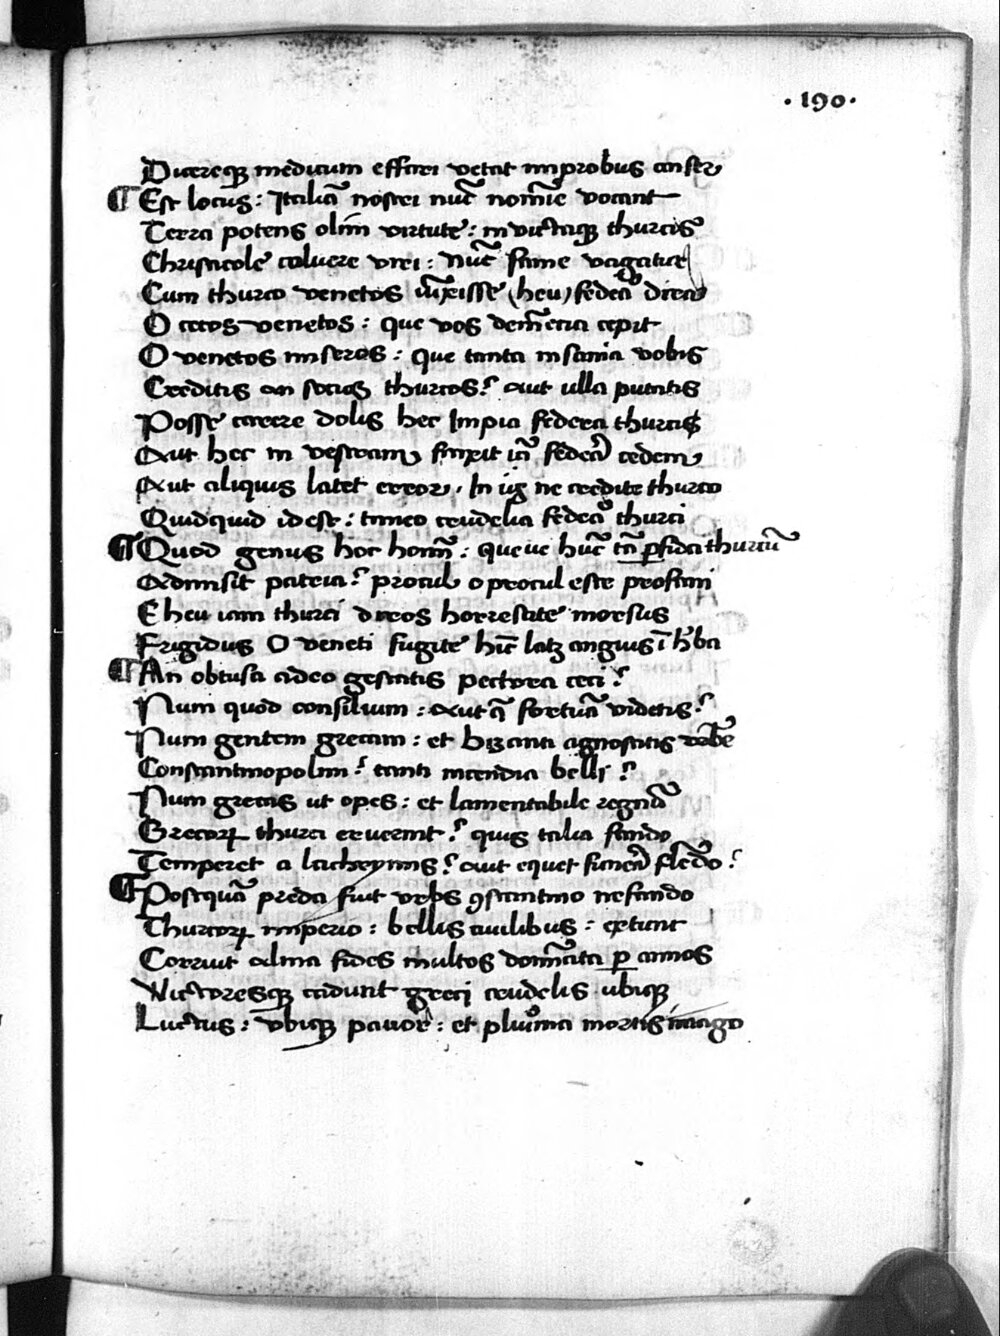 ·190·
Dicereqȝ medicum effari vetat improbus anser
¶ Est locus: Italiā nostri nūc nomīe vocant
Terra potens olim virtute: inuictaqȝ thurcis
Christicole coluere viri: Nūc fame
Cum thurco venetos (heu) federa
O cecos venetos: que vos demētia cepit
O venetos miseros: que tanta insania vobis
Creditis an socios thurcos? Aut ulla putatis
Posse carere dolis hec Impia federa thurcis
Aut hec in vestram finxit iā federa cedem
Aut aliquis latet error. In ne credite thurco
Quidquid id est: timeo crudelia federa thurci
¶ Quod genus hoc hoīm: queue hūc tā ꝑfida thurcū
Admisit patria? procul o procul este profani
Eheu iam thurci diros horrescite morsus
Frigidus O veneti fugite hīc latȝ anguis ī hba
¶ An obtusa adeo gestatis pectora ceci?
Num quod consilium: Aut fortunā videtis?
Num gentem grecam: et bizanti agnoscitis vrbē
Constantinopolim? tanti incendia belli?
Num grecas ut opes: et lamentabile regnū
Grecoꝝ thurci eruerint? quis talia fando
Temperet a lachrymis? Aut equet funera flendo?
¶ Postquā preda fuit vrbs ꝯstantino nefando
Thurcoꝝ imperio: bellis ciuilibus:
Corruit alma fides multos domīata ꝑ annos
Victoresqȝ cadunt greci crudelis ubiqȝ
Luctus: vbiqȝ pauor: et plurima mortis imago